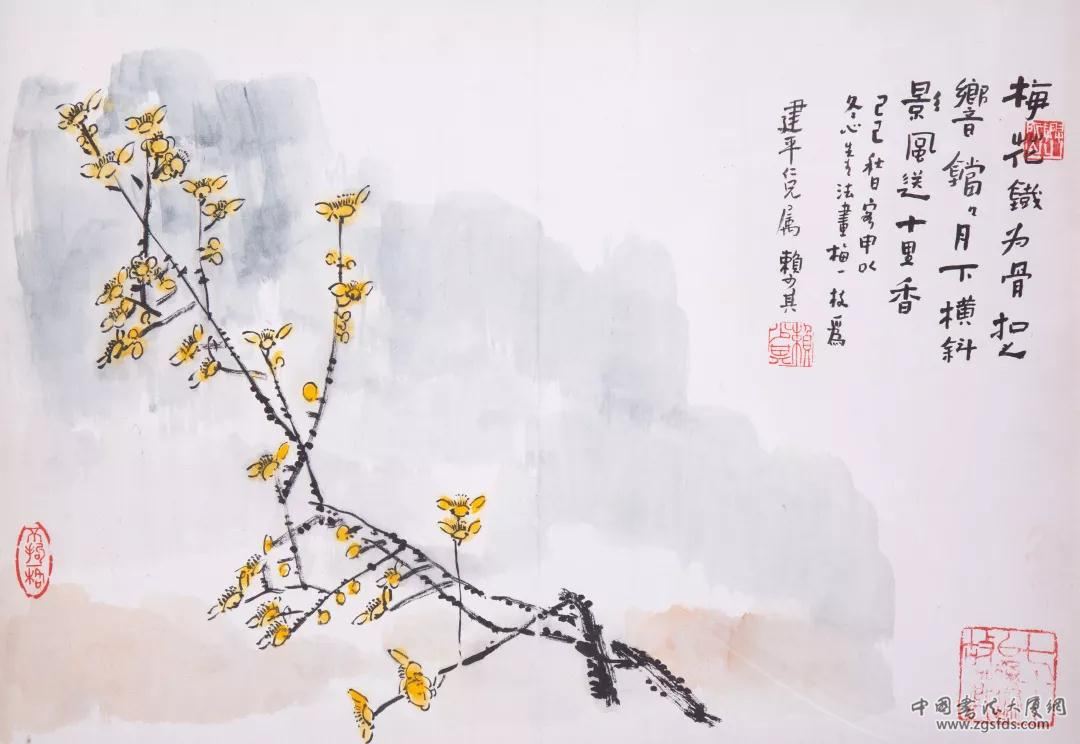 梅花鐵为骨扣之
響鐺々月下横斜
影風送十里香
己巳秋日客申以
冬心先生法畫梅一枝爲
建平仁兄属 賴少其
賴少其
中國書法大厦網
www.zgsfds.com